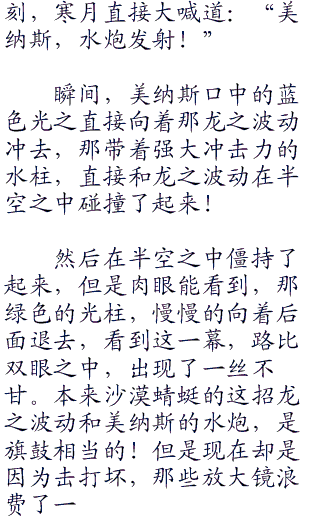 刻，寒月直接大喊道：“美
纳斯，水炮发射！”
瞬间，美纳斯口中的蓝
色光之直接向着那龙之波动
冲去，那带着强大冲击力的
水柱，直接和龙之波动在半
空之中碰撞了起来！
然后在半空之中僵持了
起来，但是肉眼能看到，那
绿色的光柱，慢慢的向着后
面退去，看到这一幕，路比
双眼之中，出现了一丝不
甘。本来沙漠蜻蜓的这招龙
之波动和美纳斯的水炮，是
旗鼓相当的！但是现在却是
因为击打坏，那些放大镜浪
费了一